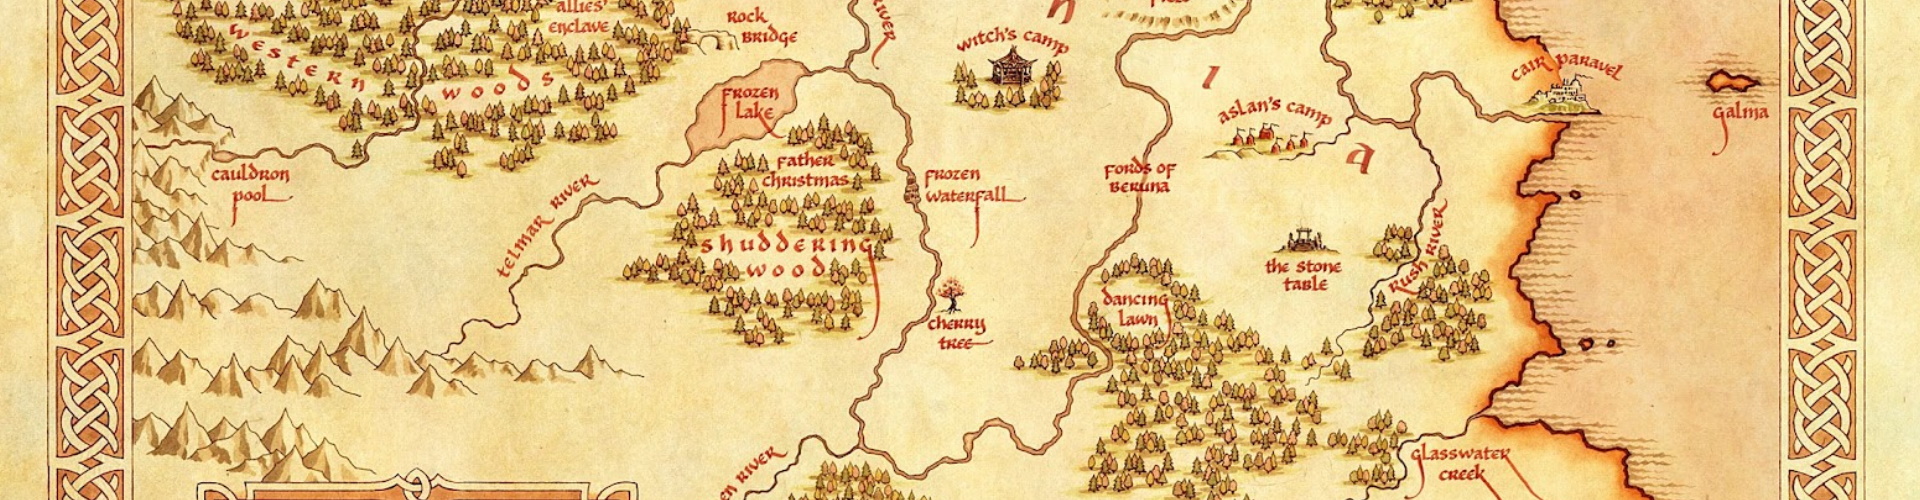 allies'
enclave
Rock
Bridge
River
Western
Woods
witch's camp
n
i
a
Cair Paravel
Galma
Frozen
Lake
aslan's camp
cauldron
pool
Father
Christmas
Frozen
Waterfall
Fords of
Beruna
Telmar River
shuddering
wood
the stone
table
Rush River
dancing
lawn
cherry
tree
River
Glasswater
creek